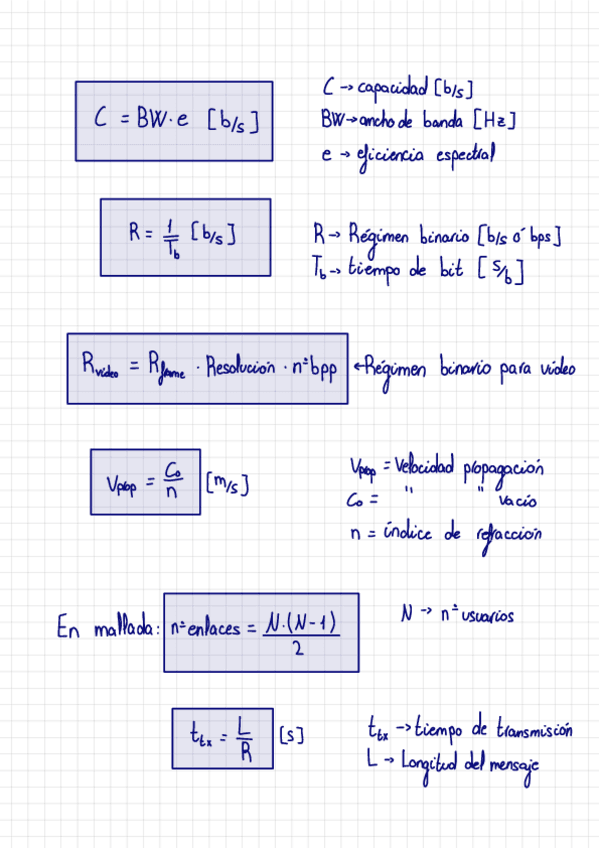 C = BW·e [b/s]
C → capacidad [b/s]
BW → ancho de banda [Hz]
e → eficiencia espectral
R = 1/T_b [b/s]
R → Régimen binario [b/s ó bps]
T_b → tiempo de bit [s/b]
R_video = R_frame · Resolución · nºbpp ← Régimen binario para video
V_prop = C_o/n [m/s]
V_prop = Velocidad propagación
C_o = " " vacío
n = índice de refracción
En mallada: nº enlaces = N·(N-1)/2
N → nº usuarios
t_tx = L/R [s]
t_tx → tiempo de transmisión
L → Longitud del mensaje